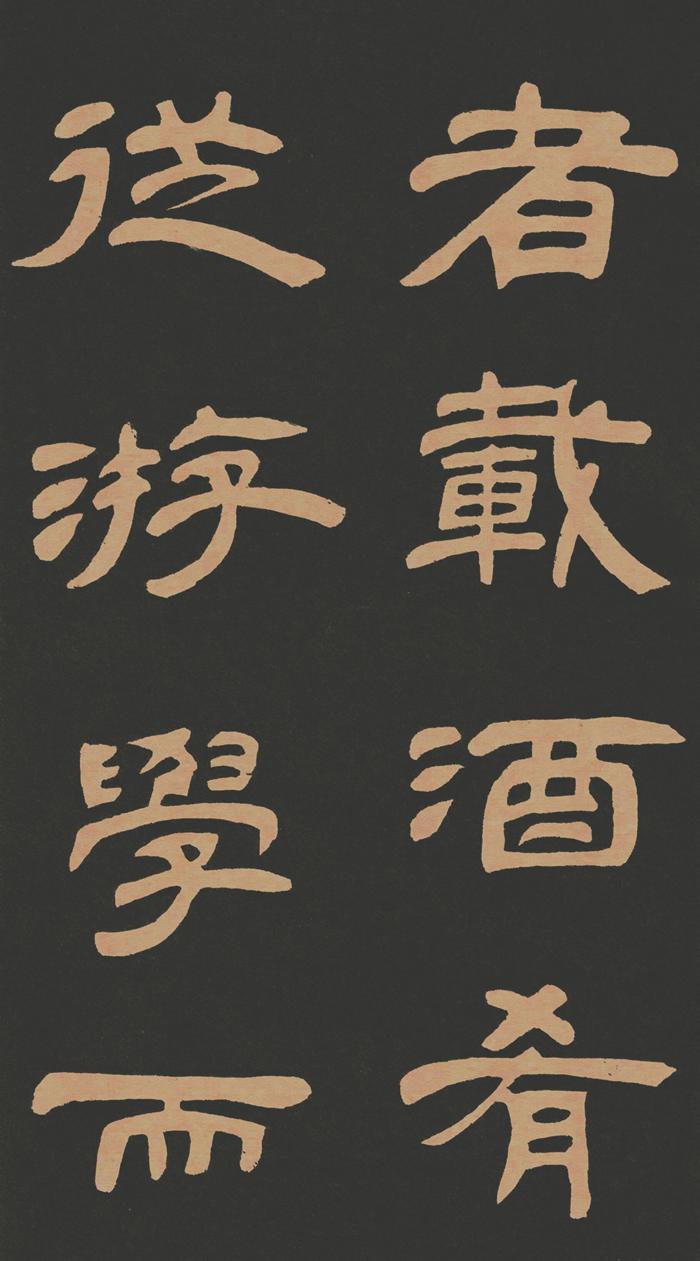 者載酒肴
從游學而